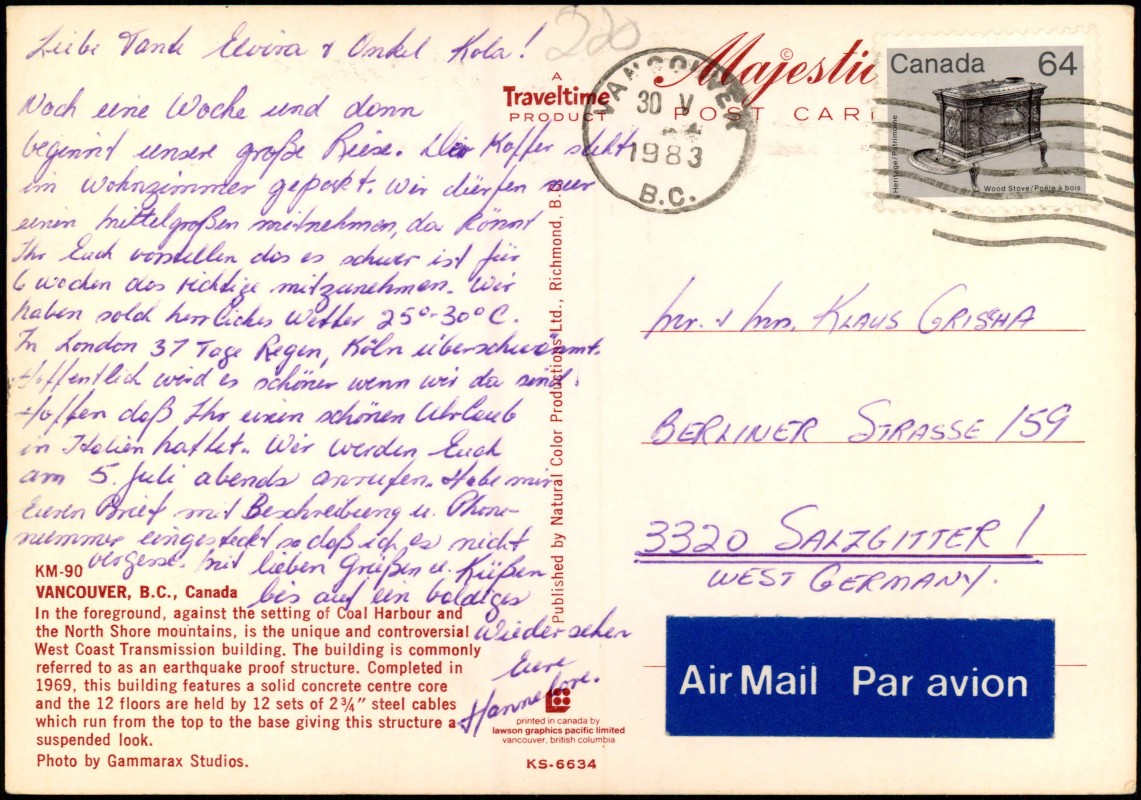 Liebe Tante Elvira + Onkel Kola!
Noch eine Woche und dann
beginnt unsere große Reise. Der Koffer steht
im Wohnzimmer gepackt. Wir dürfen nur
einen mittelgroßen mitnehmen, da könnt
Ihr Euch vorstellen das es schwer ist für
6 Wochen das richtige mitzunehmen. Wir
haben solch herrliches Wetter 25°-30°C.
In London 37 Tage Regen, Köln überschwemmt.
Hoffentlich wird es schöner wenn wir da sind.
Hoffen daß Ihr einen schönen Uhrlaub
in Italien hattet. Wir werden Euch
am 5. Juli abends anrufen. Habe mir
Euren Brief mit Beschreibung u. Phone-
nummer eingesteckt so daß ich es nicht
vergesse. Mit lieben Grüßen u. Küßen
bis auf ein baldiges
Wiedersehen
Eure
Hannelore.
KM-90
VANCOUVER, B.C., Canada
In the foreground, against the setting of Coal Harbour and
the North Shore mountains, is the unique and controversial
West Coast Transmission building. The building is commonly
referred to as an earthquake proof structure. Completed in
1969, this building features a solid concrete centre core
and the 12 floors are held by 12 sets of 2¾" steel cables
which run from the top to the base giving this structure a
suspended look.
Photo by Gammarax Studios.
220
A
Traveltime
PRODUCT
Published by Natural Color Productions Ltd., Richmond, B.C.
printed in canada by
lawson graphics pacific limited
vancouver, british columbia
KS-6634
©
Majestic
POST CARD
VANCOUVER
30 V
1983
B.C.
Canada 64
Heritage/Patrimoine
Wood Stove/Poêle à bois
Mr. + Mrs. KLAUS GRISHA
BERLINER STRASSE 159
3320 SALZGITTER 1
WEST GERMANY.
Air Mail Par avion